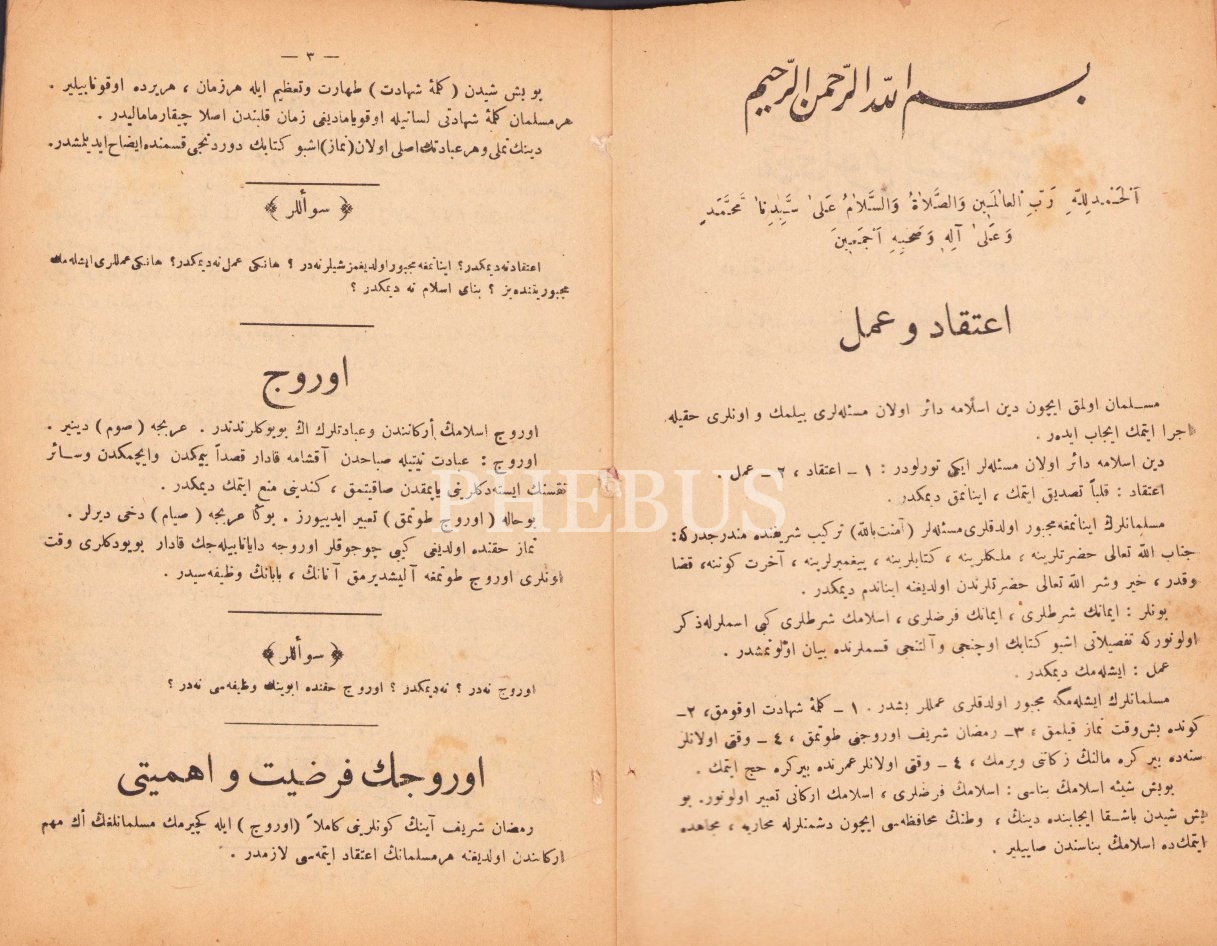 بسم الله الرحمن الرحيم
اَلْحَمْدُ لِلّٰهِ رَبِّ الْعَالَمِينَ وَالصَّلَاةُ وَالسَّلَامُ عَلٰى سَيِّدِنَا مُحَمَّدٍ
وَعَلٰى آلِهِ وَصَحْبِهِ اَجْمَعِينَ
اعتقاد و عمل
مسلمان اولمق ايچون دين اسلامه دائر اولان مسئله‌لرى بيلمك و اونلرى حقيله
اجرا ايتمك ايجاب ايدر .
دين اسلامه دائر اولان مسئله‌لر ايكى تورلودر : ١ ـ اعتقاد ، ٢ ـ عمل .
اعتقاد : قلباً تصديق ايتمك ، اينانمق ديمكدر .
مسلمانلرك اينانمغه مجبور اولدقلرى مسئله‌لر (آمنت بالله) تركيب شريفنده مندرجدركه :
جناب الله تعالى حضرتلرينه ، ملكلرينه ، كتابلرينه ، پيغمبرلرينه ، آخرت كوننه، قضا
وقدر ، خير وشر الله تعالى حضرتلرندن اولديغنه ايناندم ديمكدر .
بونلر : ايمانڭ شرطلرى ، ايمانك فرضلرى ، اسلامك شرطلرى كبى اسملرله ذكر
اولونوركه تفصيلاتى اشبو كتابك اوچنجى و آلتنجى قسملرنده بيان اولونمشدر .
عمل : ايشله‌مك ديمكدر .
مسلمانلرك ايشله‌مكه مجبور اولدقلرى عمللر بشدر . ١ ـ كلمۀ شهادت اوقومق، ٢ـ
كونده بش وقت نماز قيلمق ، ٣ـ رمضان شريف اوروجنى طوتمق ، ٤ ـ وقتى اولانلر
سنه‌ده بير كره مالنڭ زكاتى ويرمك ، ٤ ـ وقتى اولانلر عمرنده بيركره حج ايتمك .
بوبش شيئه اسلامڭ بناسى : اسلامڭ فرضلرى ، اسلامك اركانى تعبير اولونور. بو
بش شيدن باشقا ايجابنده دينڭ ، وطنڭ محافظه‌سى ايچون دشمنلرله محاربه ، مجاهده
ايتمك‌ده اسلامڭ بناسندن صاييلير .
— ٣ —
بوبش شيدن ( كلمۀ شهادت ) طهارت وتعظيم ايله هرزمان ، هريرده اوقونابيلير .
هرمسلمان كلمۀ شهادتى لسانيله اوقوياماديغى زمان قلبندن اصلا چيقارماماليدر .
دينك تملى وهرعبادتك اصلى اولان (نماز) اشبو كتابك دوردنجى قسمنده ايضاح ايديلمشدر.
﴿ سوأللر ﴾
اعتقاد نه ديمكدر؟ اينانمغه مجبور اولديغمز شيلر نه‌در ؟ هانكى عمل نه ديمكدر؟ هانكى عمللرى ايشله‌مك
مجبوريتنده‌يز ؟ بناى اسلام نه ديمكدر ؟
اوروج
اوروج اسلامڭ أركانندن وعبادتلرك اڭ بويوكلرندندر . عربجه ( صوم ) دينير .
اوروج : عبادت نيتيله صباحدن آقشامه قادار قصداً ييمكدن وايچمكدن وسائر
نفسنڭ ايسته‌دكلرينى ياپمقدن صاقينمق ، كندينى منع ايتمك ديمكدر .
بوحاله ( اوروج طوتمق ) تعبير ايدييورز . بوڭا عربجه ( صيام ) دخى ديرلر .
نماز حقنده اولديغى كبى چوجوقلر اوروجه دايانابيله‌جك قادار بويودكلرى وقت
اونلرى اوروج طوتمغه آليشديرمق آنانڭ ، بابانڭ وظيفه‌سيدر .
﴿ سوأللر ﴾
اوروج نه‌در ؟ نه ديمكدر ؟ اوروج حقنده ابوينك وظيفه‌سى نه‌در ؟
اوروجك فرضيت و اهميتى
رمضان شريف آينڭ كونلرنى كاملاً (اوروج ) ايله كچيرمك مسلمانلغڭ اڭ مهم
اركانندن اولديغنه هرمسلمانك اعتقاد ايتمه‌سى لازمدر .
PHEBUS